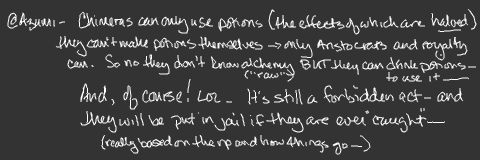 @Azumi - Chimeras can only use potions (the effects of which are halved)
they can't make potions themselves → only Aristocrats and royalty
can. So no they don't know alchemy BUT they can drink potions -
("raw") to use it
And, of course! Lol - It's still a forbidden act - and
they will be put in jail if they are ever "caught" -
(really based on the rp and how things go -)